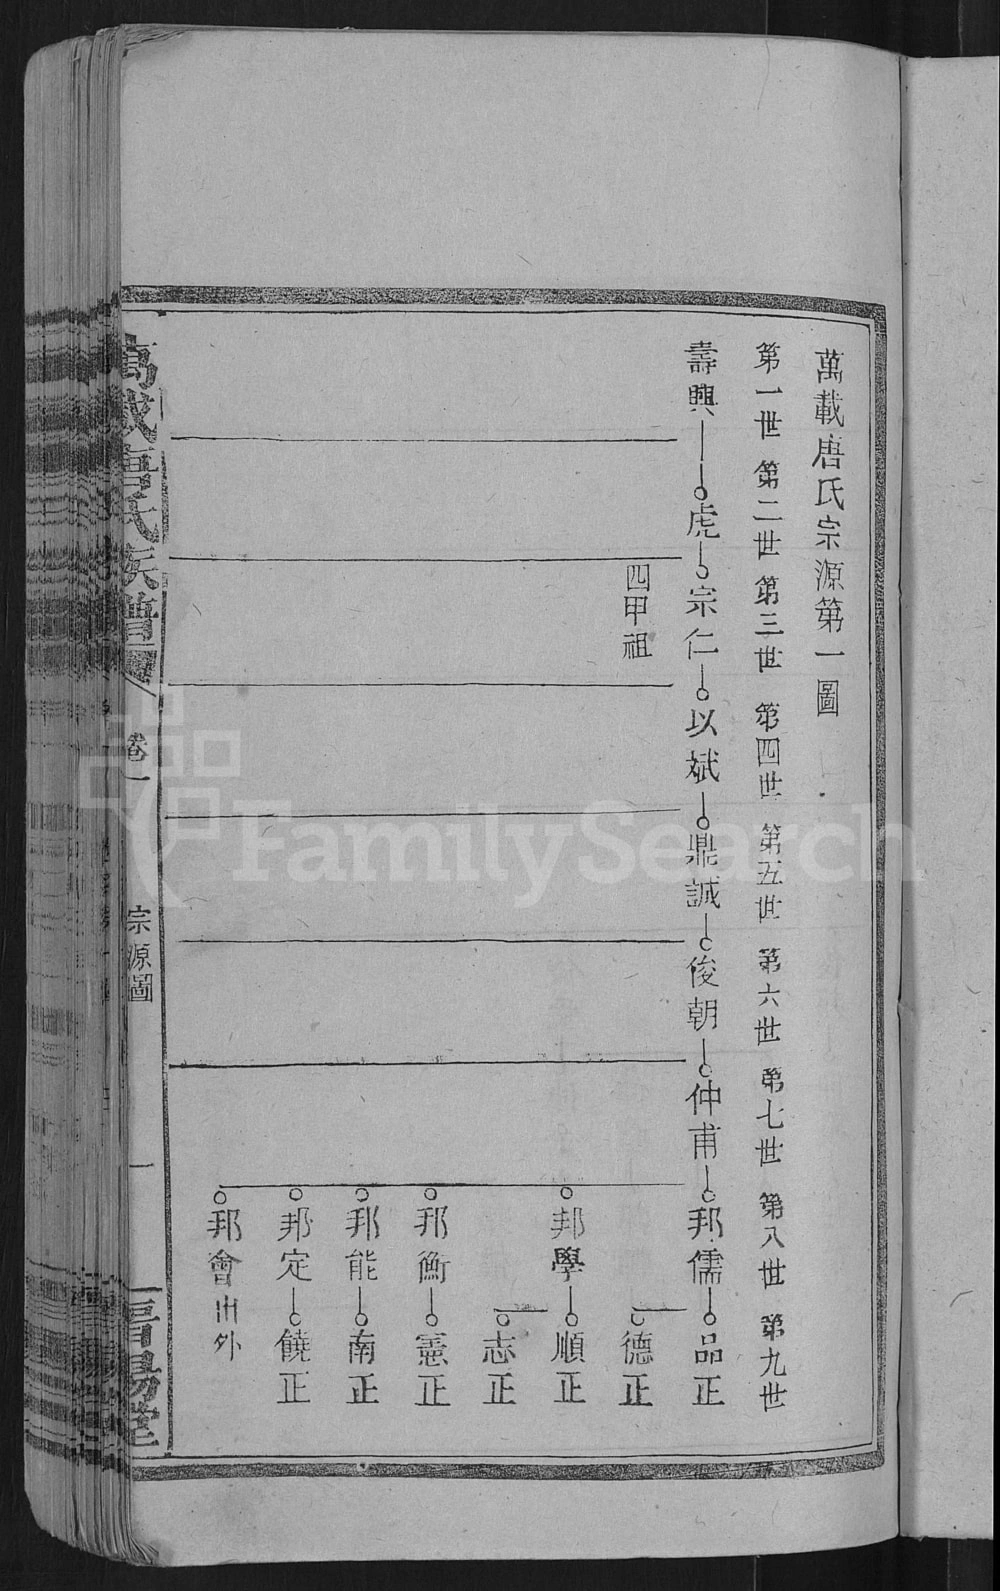 萬載唐氏宗源第一圖
第一世 第二世 第三世 第四世 第五世 第六世 第七世 第八世 第九世
壽興 虎 宗仁 以斌 鼎誠 俊朝 仲甫 邦儒 品正
四甲祖
德正
邦學 順正
志正
邦衡 憲正
邦能 南正
邦定 饒正
邦會 出外
萬載唐氏族譜 卷一 宗源圖 一 晋陽堂
FamilySearch